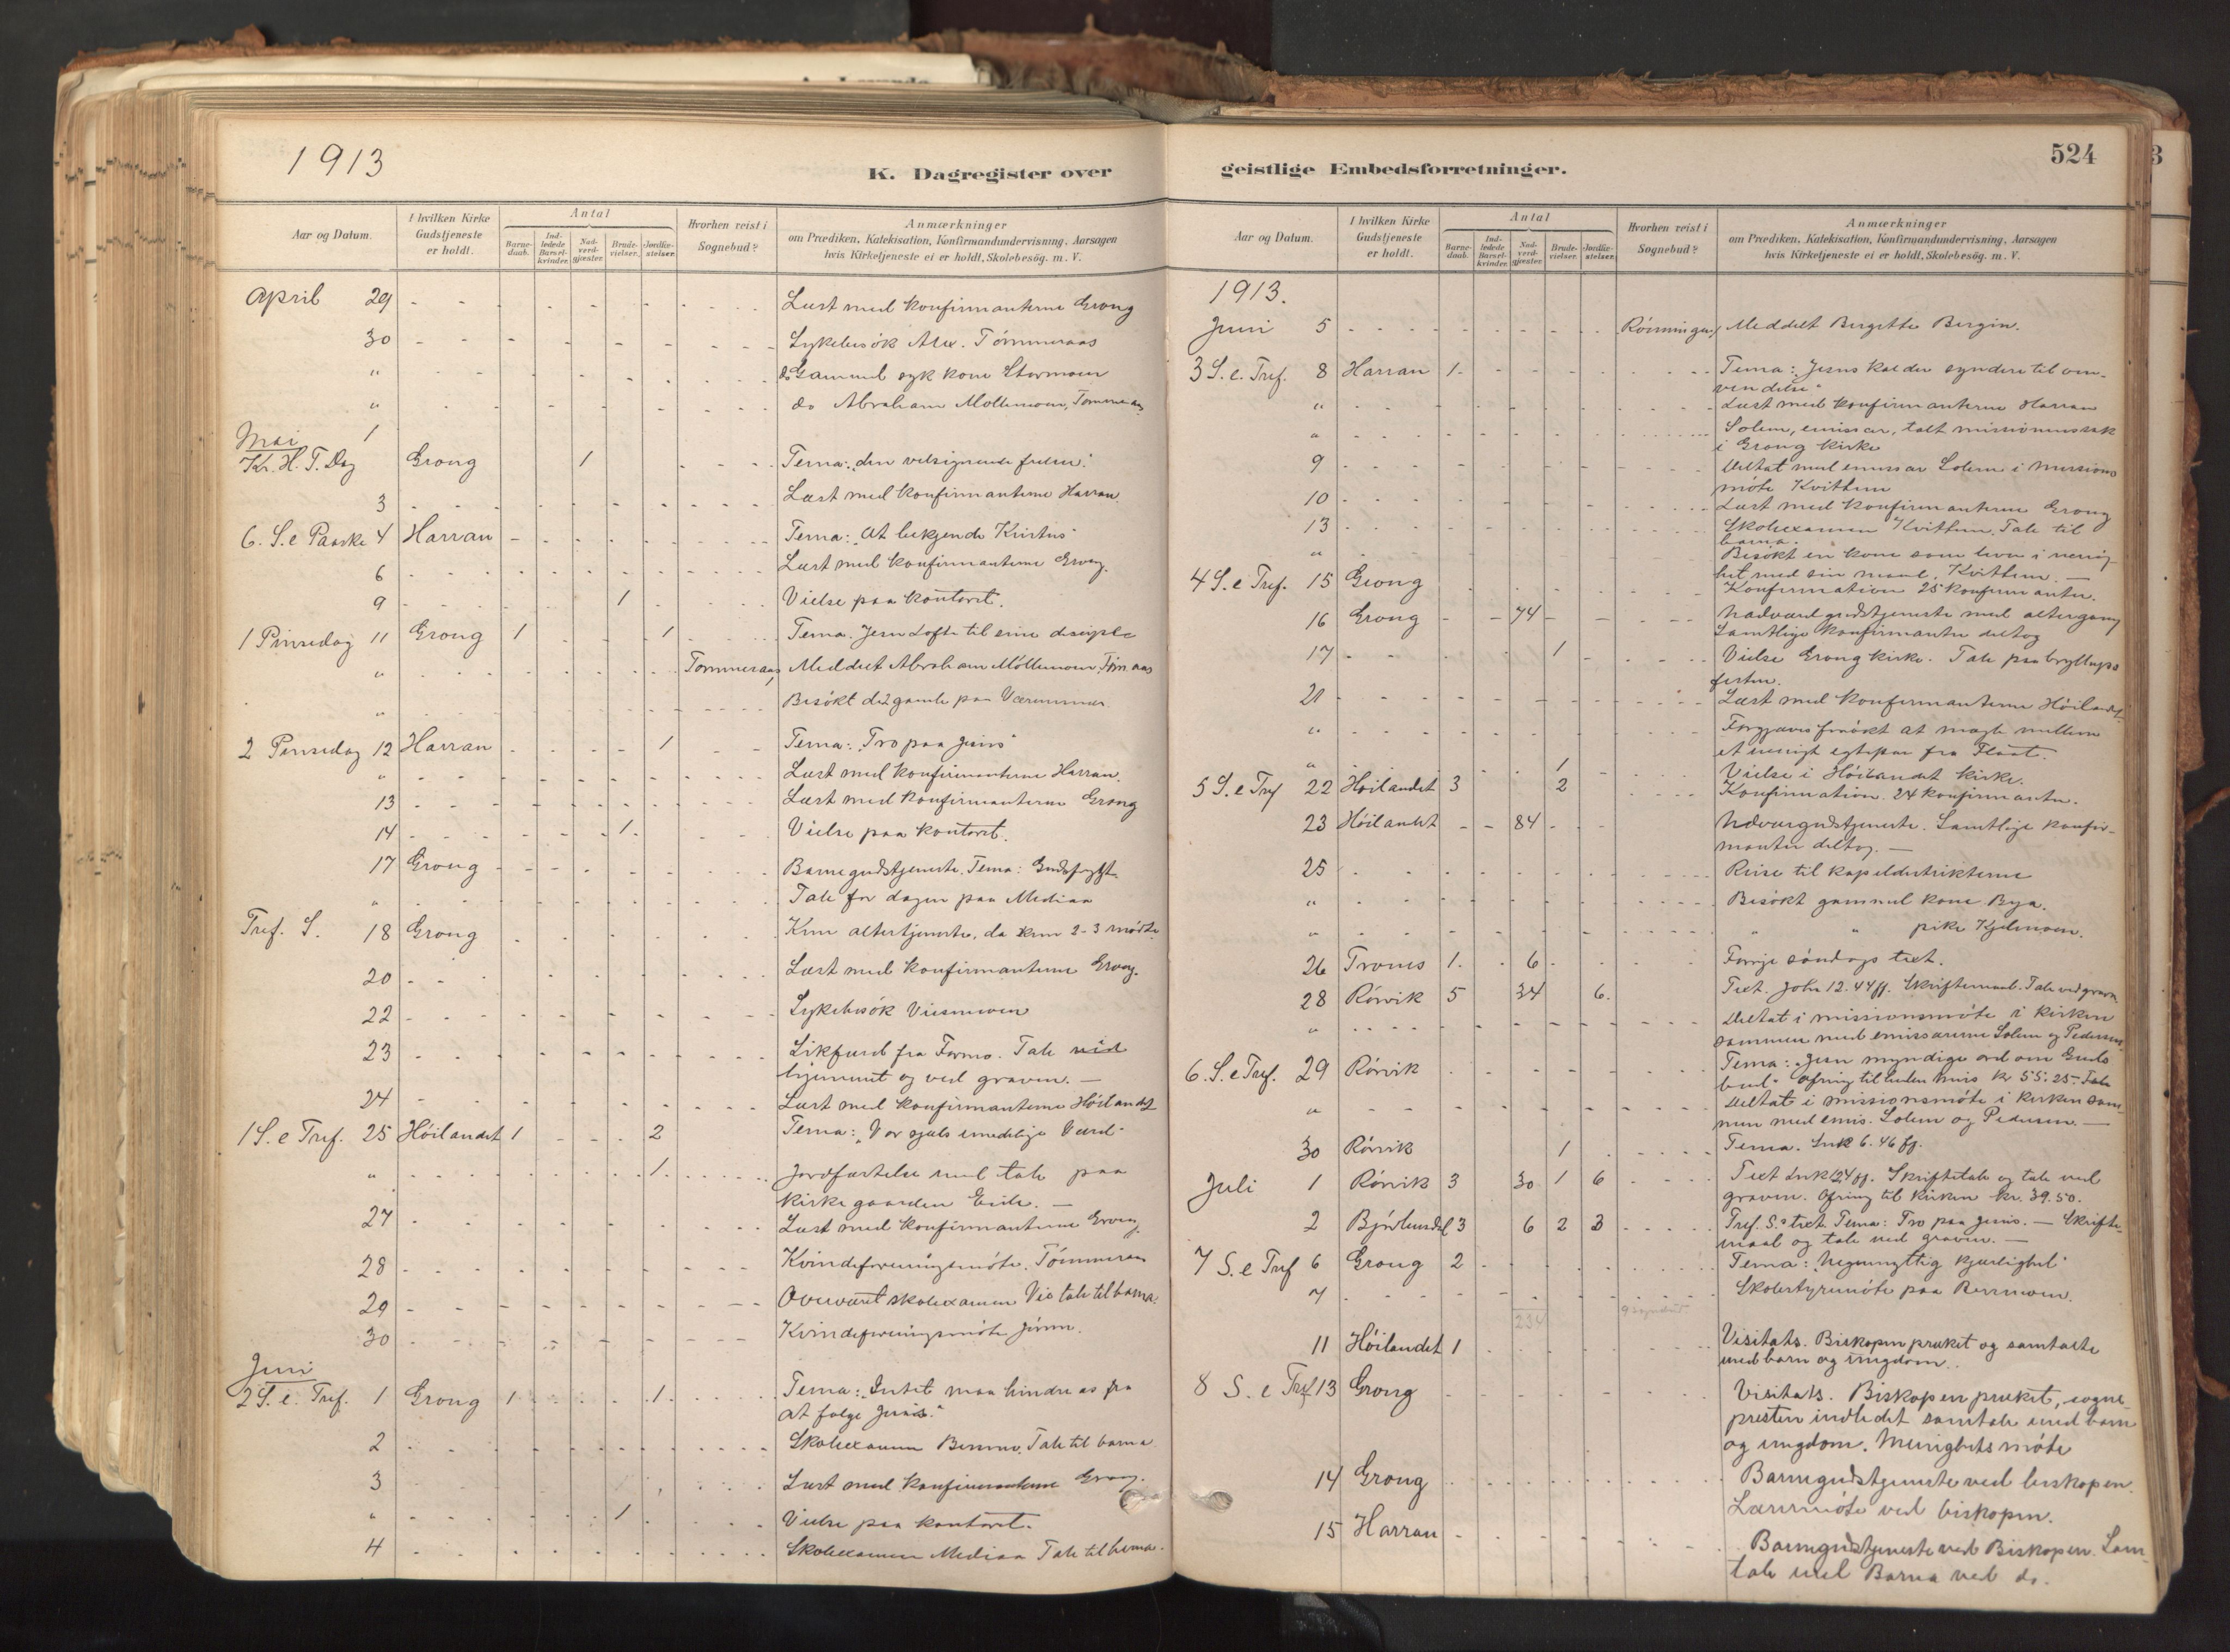 1913
K. Dagregister over
Aar og Datum.
I hvilken Kirke Gudstjeneste er holdt.
Antal
Barne-daab.
Ind-ledede Barsel-kvinder.
Nad-verd-gjæster.
Brude-vielser.
Jordfæ-stelser.
Hvorhen reist i Sognebud?
Anmærkninger
om Prædiken, Katekisation, Konfirmandundervisning, Aarsagen
hvis Kirketjeneste ei er holdt, Skolebesög. m. V.
April 29 Læst med konfirmanterne Grong
30 Sykebesök Alex. Tömmeraas
" do Gammel syk kone Stormoen
" do Abraham Möllemoen, Tømmeraas
Mai 1
Kr. H. F. Dag Grong 1 Tema: "den velsignende frelser."
3 Læst med konfirmanterne Harran
6. S. e Paaske 4 Harran Tema: "At bekjende Kristus"
6 Læst med konfirmanterne Grong.
9 1 Vielse paa kontoret.
1 Pinsedag 11 Grong 1 1 Tema. Jesu Löfte til sine disiple
" Tømmeraas, Meddelt Abraham Möllemoen Töm.aas
" Besökt de 2 gamle paa Værumnes
2 Pinsedag 12 Harran 1 Tema: "Tro paa Jesus"
" Læst med konfirmanterne Harran.
13 Læst med konfirmanterne Grong
14 1 Vielse paa kontoret.
17 Grong Barnegudstjeneste. Tema: Gudsfrygt.
" Tale for dagen paa Mediaa
Tref. S. 18 Grong Kun altertjeneste, da kun 2-3 mödte.
20 Læst med konfirmanterne Grong.
22 Sykebesök Viesmoen
23 Likfærd fra Formo. Tale ved
hjemmet og ved graven. —
24 Læst med konfirmanterne Höilandet
1 S. e Tref. 25 Höilandet 1 2 Tema: "Vor sjæls umedelige Værd"
" 1 Jordfæstelse med tale paa
kirkegaarden Eide. —
27 Læst med konfirmanterne Grong
28 Kvindeforeningsmöte. Tömmeraas
29 Overværet skolexamen Vie tale til barna.
30 Kvindeforeningsmöte Jörum.
Juni
2 S. e. Tref. 1 Grong 1 1 Tema: "Intet maa hindre os fra
at følge Jesus."
2 Skolexamen Bermo. Tale til barna
3 Læst med konfirmanterne Grong.
" 1 Vielse paa kontoret.
4 Skolexamen Mediaa Tale til barna.
geistlige Embedsforretninger.
524
Aar og Datum.
I hvilken Kirke Gudstjeneste er holdt.
Antal
Barne-daab.
Ind-ledede Barsel-kvinder.
Nad-verd-gjæster.
Brude-vielser.
Jordfæ-stelser.
Hvorhen reist i Sognebud?
Anmærkninger
om Prædiken, Katekisation, Konfirmandundervisning, Aarsagen
hvis Kirketjeneste ei er holdt, Skolebesög. m. V.
1913.
Juni 5 Rönningen, Meddelt Bergitte Bergin.
3 S. e. Tref. 8 Harran 1 Tema: "Jesus kalder syndere til om-
vendelse"
" Læst med konfirmanterne Harran
" Solem, emissær, talt missionens sak
i Grong kirke
9 Deltat med emissær Solem i missions
møte Kvittem
10 Læst med konfirmanterne Grong
13 Skolexamen Kvittem. Tale til
barna.
" Besökt en kone som lever i uenig
het med sin mand, Kvittem. —
4 S. e Tref. 15 Grong Konfirmation 25 konfirmanter.
16 Grong 74 Nadverdgudstjeneste med altergang
Samtlige konfirmanter deltog
17 1 Vielse Grong kirke. Tale paa bryllups
festen.
21 Læst med konfirmanterne Höilandet.
" Forgjæves forsökt at mægle mellem
et uenigt egtepar fra Flaat.
" 1 Vielse i Höilandet kirke.
5 S. e Tref 22 Höilandet 3 2 Konfirmation. 24 konfirmanter.
23 Höilandet 84 Nadvergudstjeneste. Samtlige konfir-
manter deltog. —
25 Reise til kapeldistrikterne
" Besökt gammel kone Bya.
" " pike Kjelmoen.
26 Trones 1. 6 Forrige søndags text.
28 Rörvik 5 34 6. Text. Joh 12. 44 ff. Skriftemaal. Tale ved graven.
" Deltat i missionsmöte i kirken
sammen med emissærerne Solem og Pedersen.
6. S. e Tref. 29 Rörvik Tema: "Jesu myndige ord om Guds
bud." Ofring til Luther miss kr 55.25. Tale
" Deltat i missionsmöte i kirken sam-
men med emis. Solem og Pedersen. —
30 Rörvik 1 Tema. Luk 6. 46 fg.
Juli 1 Rörvik 3 30 1 6 Text Luk 12,4 ff. Skriftetale og tale ved
graven. Ofring til kirken kr. 39.50.
2 Björhusdal 3 6 2 3 Tref. S.s text Tema: Tro paa Jesus. — Skrifte-
maal og tale ved graven. —
7 S. e Tref 6 Grong 2 Tema: "Uegennyttig kjærlighet"
7 Skolestyremöte paa Bermoen.
234
11 Höilandet 1 Visitats. Biskopen præket og samtalte
med barn og ungdom.
8 S. e Tref 13 Grong Visitats. Biskopen præket, sogne-
presten indledet samtale med barn
og ungdom. Menighetsmöte
14 Grong Barnegudstjeneste ved biskopen.
Lærermöte ved biskopen.
15 Harran Barnegudstjeneste ved Biskopen. Sam-
tale med Barna ved do.